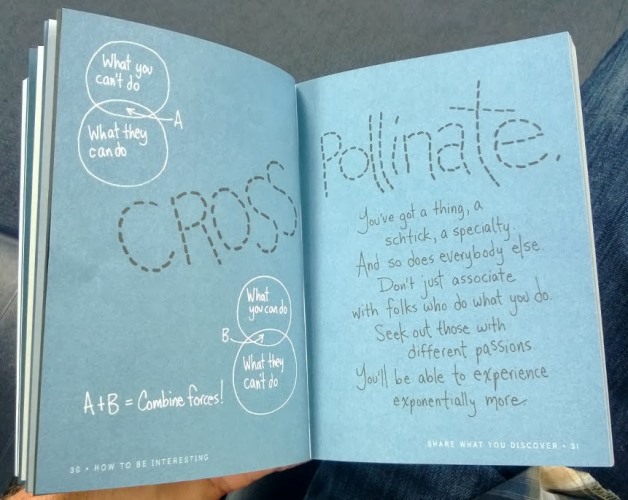 What you
can't do
A
What they
can do
CROSS
What
you can do
B
What they
can't do
A+B = Combine forces!
30 • HOW TO BE INTERESTING
Pollinate.
You've got a thing, a
schtick, a specialty.
And so does everybody else.
Don't just associate
with folks who do what you do.
Seek out those with
different passions
You'll be able to experience
exponentially more.
SHARE WHAT YOU DISCOVER • 31